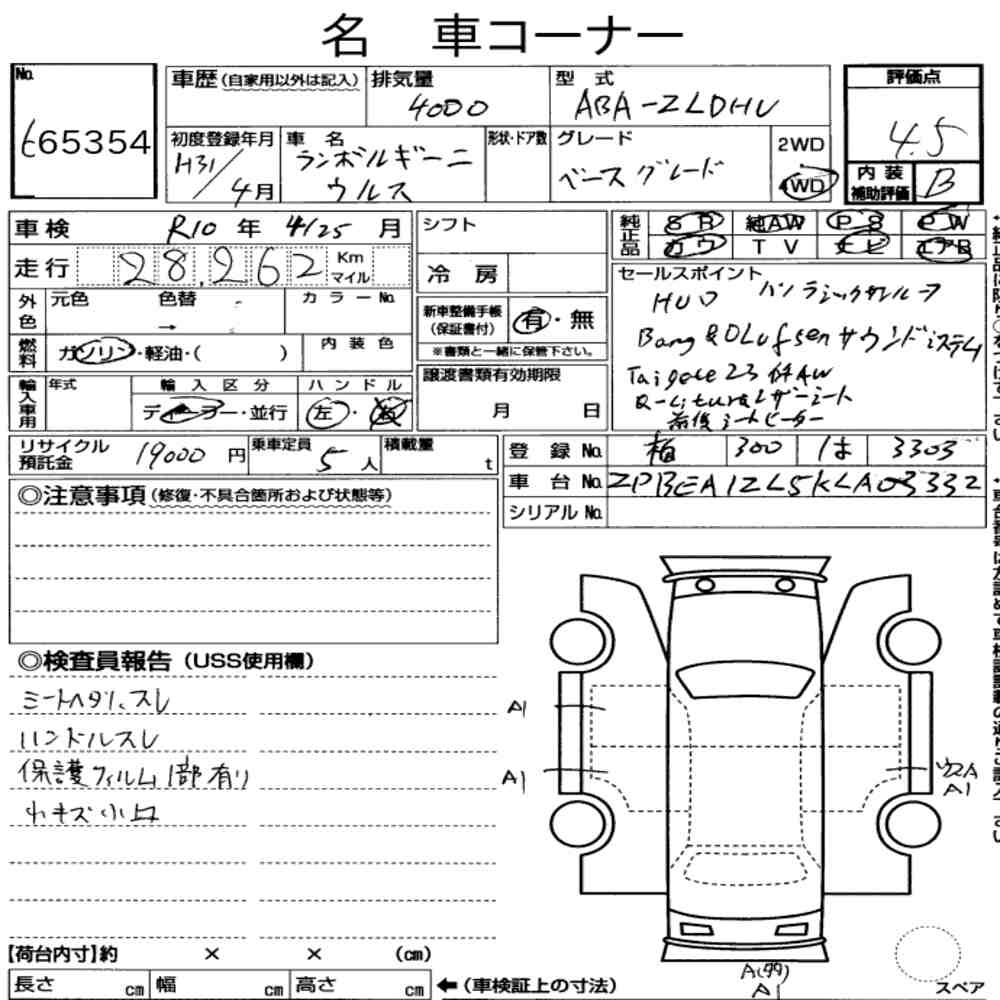 名 車コーナー
No.
65354
車歴(自家用以外は記入)
排気量
4000
型 式
ABA-ZLDHU
評価点
4.5
初度登録年月
H31/4月
車 名
ランボルギーニ
ウルス
形状・ドア数
グレード
ベースグレード
2WD
4WD
内 装
補助評価
B
車検 R10 年 4/25 月
走行 28,262 Km
マイル
外色
元色
色替
→
カラーNo.
燃料
ガソリン・軽油・( )
内装色
輸入車用
年式
輸入区分
ディーラー・並行
ハンドル
左・右
シフト
冷房
新車整備手帳
(保証書付)
有・無
※書類と一緒に保管下さい。
譲渡書類有効期限
月 日
純正品
SR 純AW PS PW
カワ TV ナビ エアB
セールスポイント
HUD パノラミックサンルーフ
Bang & Olufsenサウンドシステム
Taigete 23インAW
Q-Lituraレザーシート
前後シートヒーター
リサイクル
預託金
19000 円
乗車定員
5 人
積載量
t
登録No. 300 は 3303
車台No. ZPBEA1ZL5KLA03332
シリアルNo.
◎注意事項(修復・不具合箇所および状態等)
◎検査員報告(USS使用欄)
シートヘタリ、スレ
ハンドルスレ
保護フィルム1部有り
キズ小凹
A1
A1
A1
A1
スペア
【荷台内寸】約 × × (cm)
長さ cm 幅 cm 高さ cm
←(車検証上の寸法)